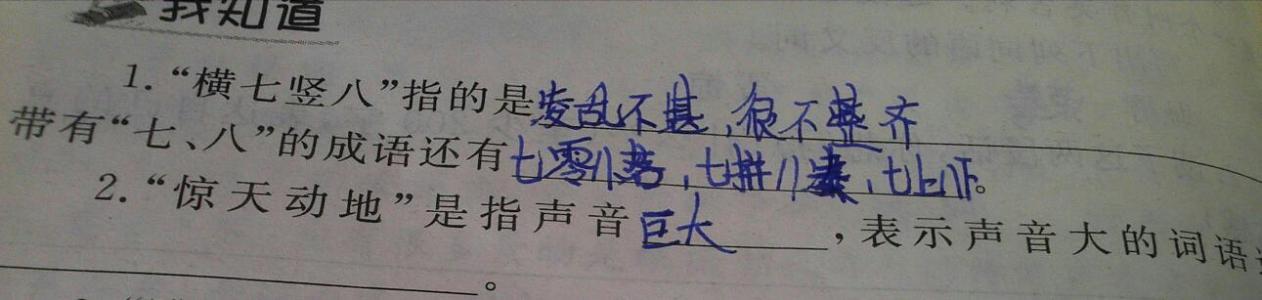 我知道
1.“横七竖八”指的是凌乱不堪，很不整齐
带有“七、八”的成语还有七零八落，七拼八凑，七上八下。
2.“惊天动地”是指声音巨大，表示声音大的词语
。